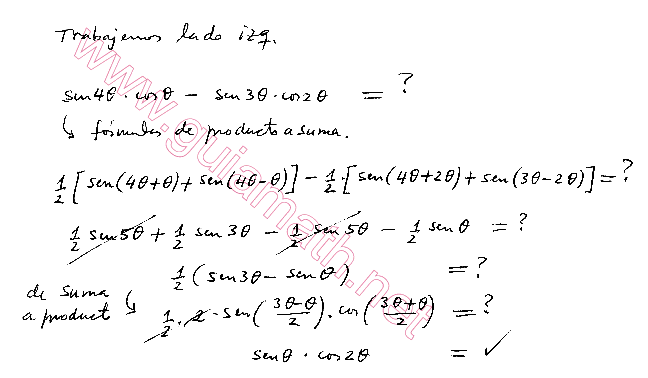 Trabajemos lado izq.
sen4θ · cosθ − sen3θ · cos2θ = ?
↳ fórmulas de producto a suma.
1/2 [sen(4θ+θ) + sen(4θ−θ)] − 1/2 · [sen(4θ+2θ) + sen(3θ−2θ)] = ?
1/2 sen5θ + 1/2 sen3θ − 1/2 sen5θ − 1/2 senθ = ?
1/2 (sen3θ − senθ) = ?
de suma a product ↳
1/2 · 2 · sen((3θ−θ)/2) · cos((3θ+θ)/2) = ?
senθ · cos2θ = ✓
www.guiamath.net